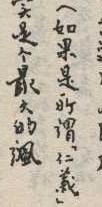 （如果是所谓“仁義”
实是个最大的讽